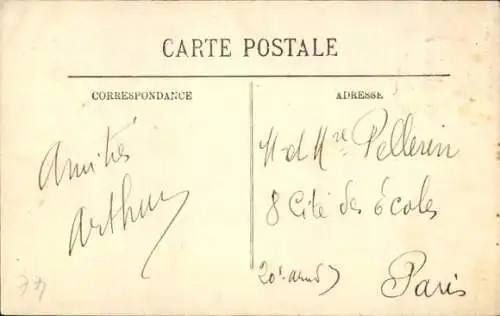 CARTE POSTALE
CORRESPONDANCE
ADRESSE
Amitiés
Arthur
M et Mme Pellerin
8 Cité des Écoles
20e arrd
Paris